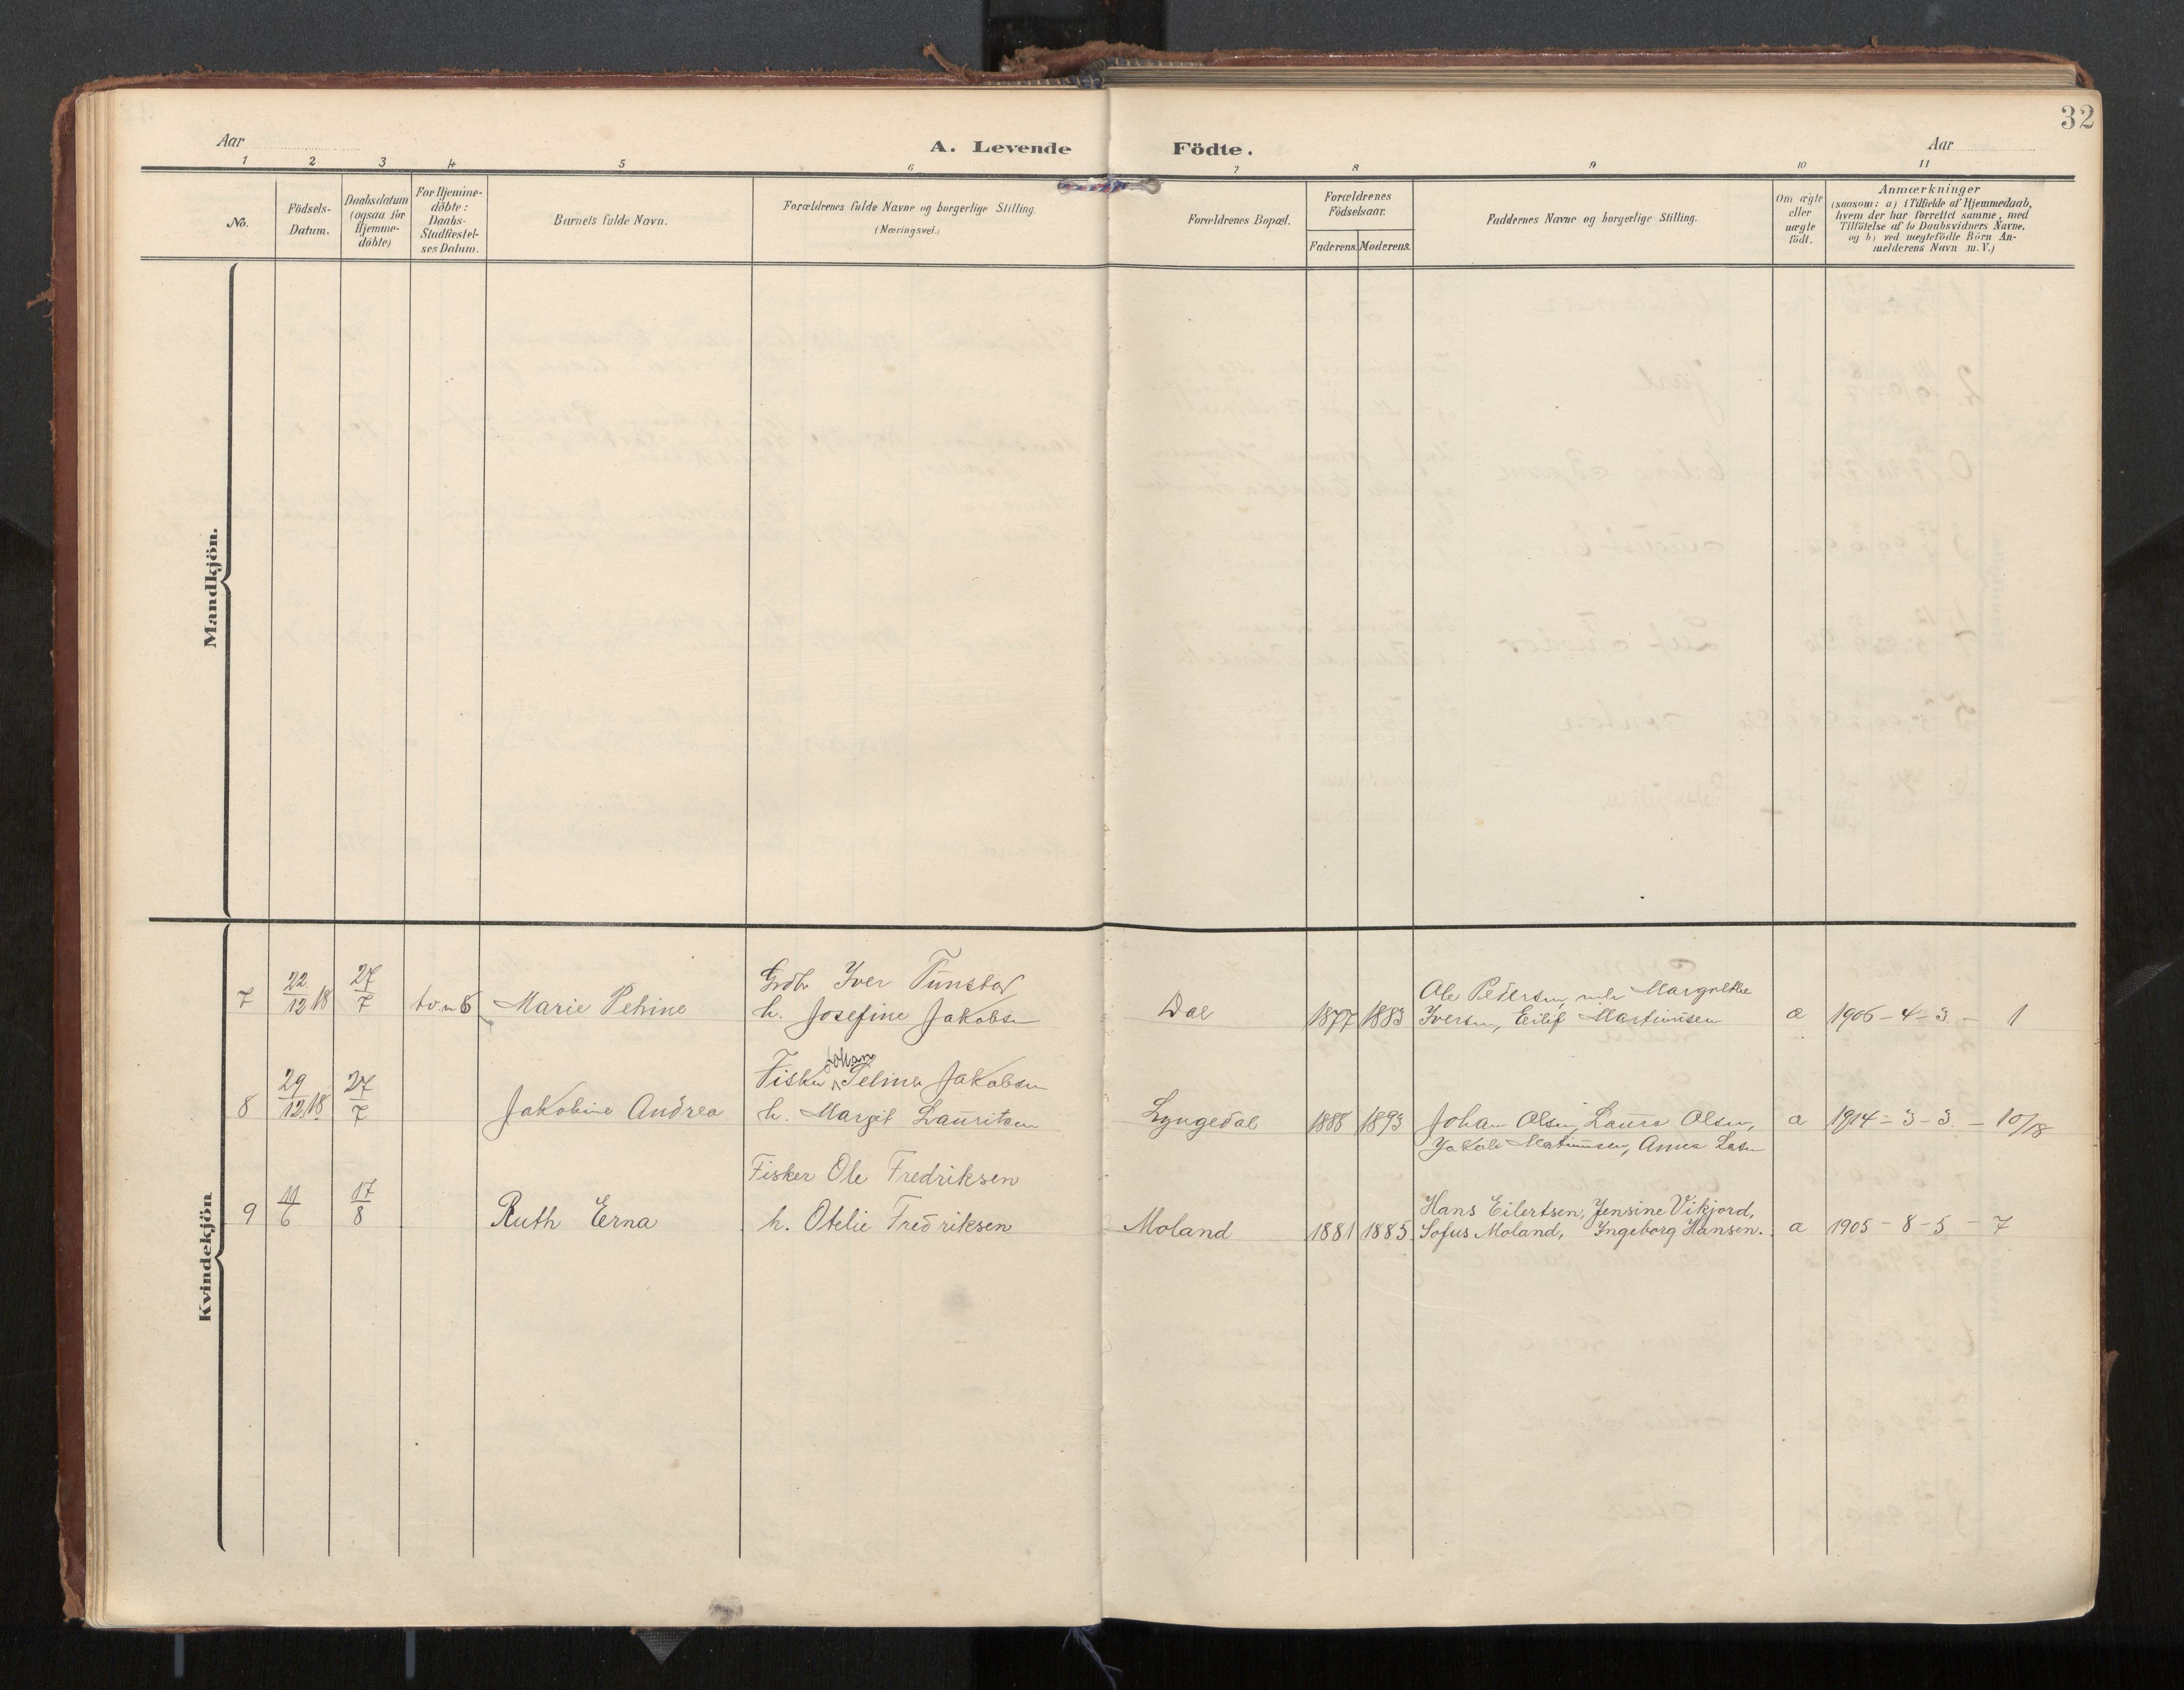 32
Aar
A. Levende Födte.
Aar
1 2 3 4 5 6 7 8 9 10 11
No.
Födsels-
Datum.
Daabsdatum
(ogsaa for
Hjemme-
döbte)
For Hjemme-
döbte:
Daabs-
Stadfæstel-
ses Datum.
Barnets fulde Navn.
Forældrenes fulde Navne og borgerlige Stilling.
(Næringsvei.)
Forældrenes Bopæl.
Forældrenes
Födselsaar.
Faderens. Moderens.
Faddernes Navne og borgerlige Stilling.
Om ægte
eller
uægte
födt.
Anmærkninger
(saasom: a) i Tilfælde af Hjemmedaab,
hvem der har forrettet samme, med
Tilföielse af to Daabsvidners Navne.
og b) ved uægtefödte Börn An-
melderens Navn m. V.)
Mandkjön.
Kvindekjön
7 22/12 18 27/7 tv. m 6 Marie Petrine
Grdbr Iver Tunstad
h. Josefine Jakobsen
Dal 1877 1883
Ole Pedersen, Margrethe
Iversen, Eilif Martinusen
a 1906 - 4 - 3. - 1
8 29/12.18. 27/7 Jakobine Andrea
Johan
Fisker Telmer Jakobsen
h. Margit Lauritsen
Lyngedal 1888 1893
Johan Olsen, Laura Olsen,
Jakob Matinusen, Anna
a 1914 - 3 - 3. - 10/18
9 11/6 17/8 Ruth Erna
Fisker Ole Fredriksen
h. Otelie Fredriksen
Moland 1881 1885.
Hans Eilertsen, Jensine Vikjord,
Sofus Moland, Ingeborg Hansen.
a 1905 - 8 - 5 - 7